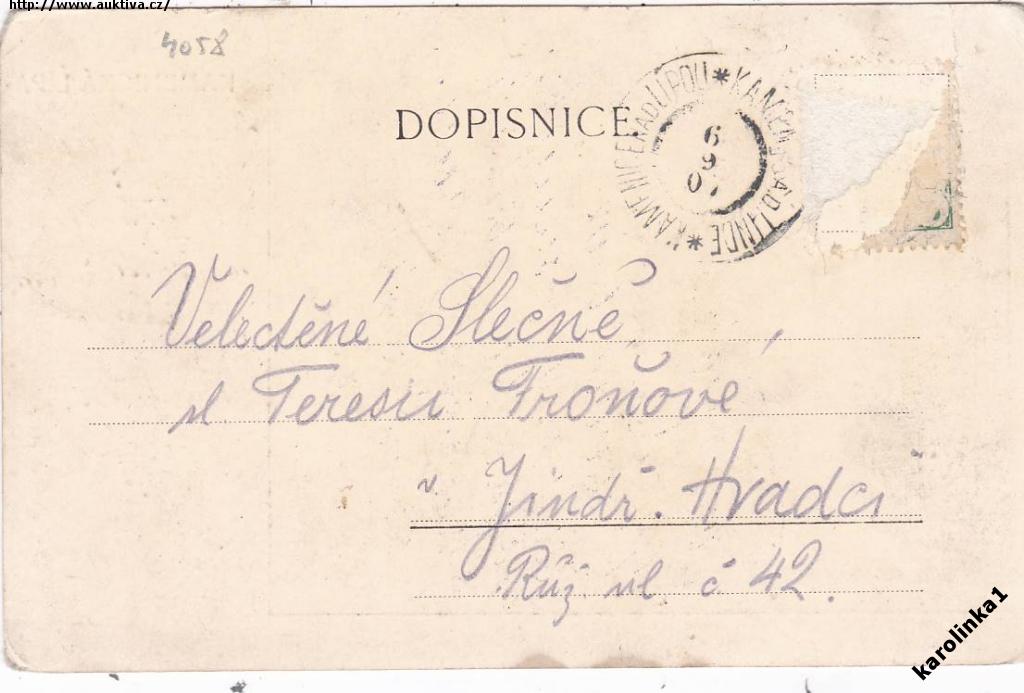 http://www.auktiva.cz/
4058
DOPISNICE.
KAMENICE NAD LIPOU * KAMENICE A.D. LINDE *
6
9
07
Velectěné Slečně,
sl Teresii Froňové
v Jindř. Hradci
Růž ul č 42.
karolinka1